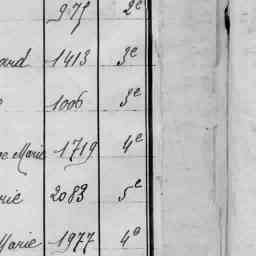 975 2e
ard 1413 3e
1006 3e
ne Marie 1719 4e
rie 2083 5e
Marie 1977 4e